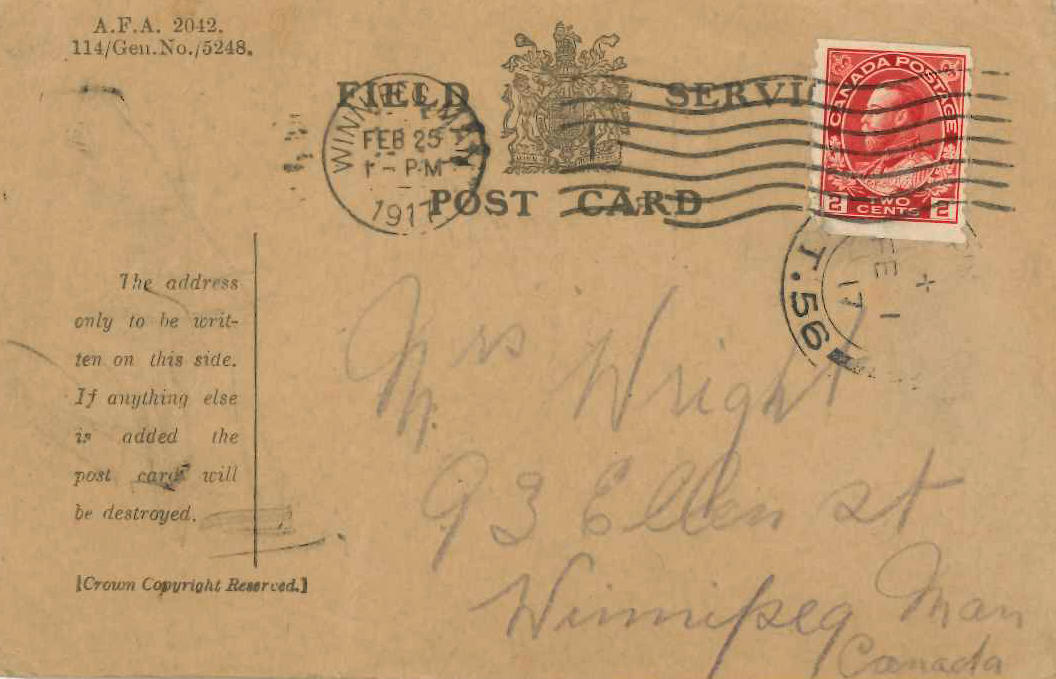 A.F.A. 2042.
114/Gen.No./5248.
FIELD SERVIC
POST CARD
WINNIPEG MAN
FEB 25
1 - P.M
1917
CANADA POSTAGE
2 TWO CENTS 2
T.56
FE 1
17
The address
only to be writ-
ten on this side.
If anything else
is added the
post card will
be destroyed.
[Crown Copyright Reserved.]
Mrs Wright
93 Ellen st
Winnipeg Man
Canada